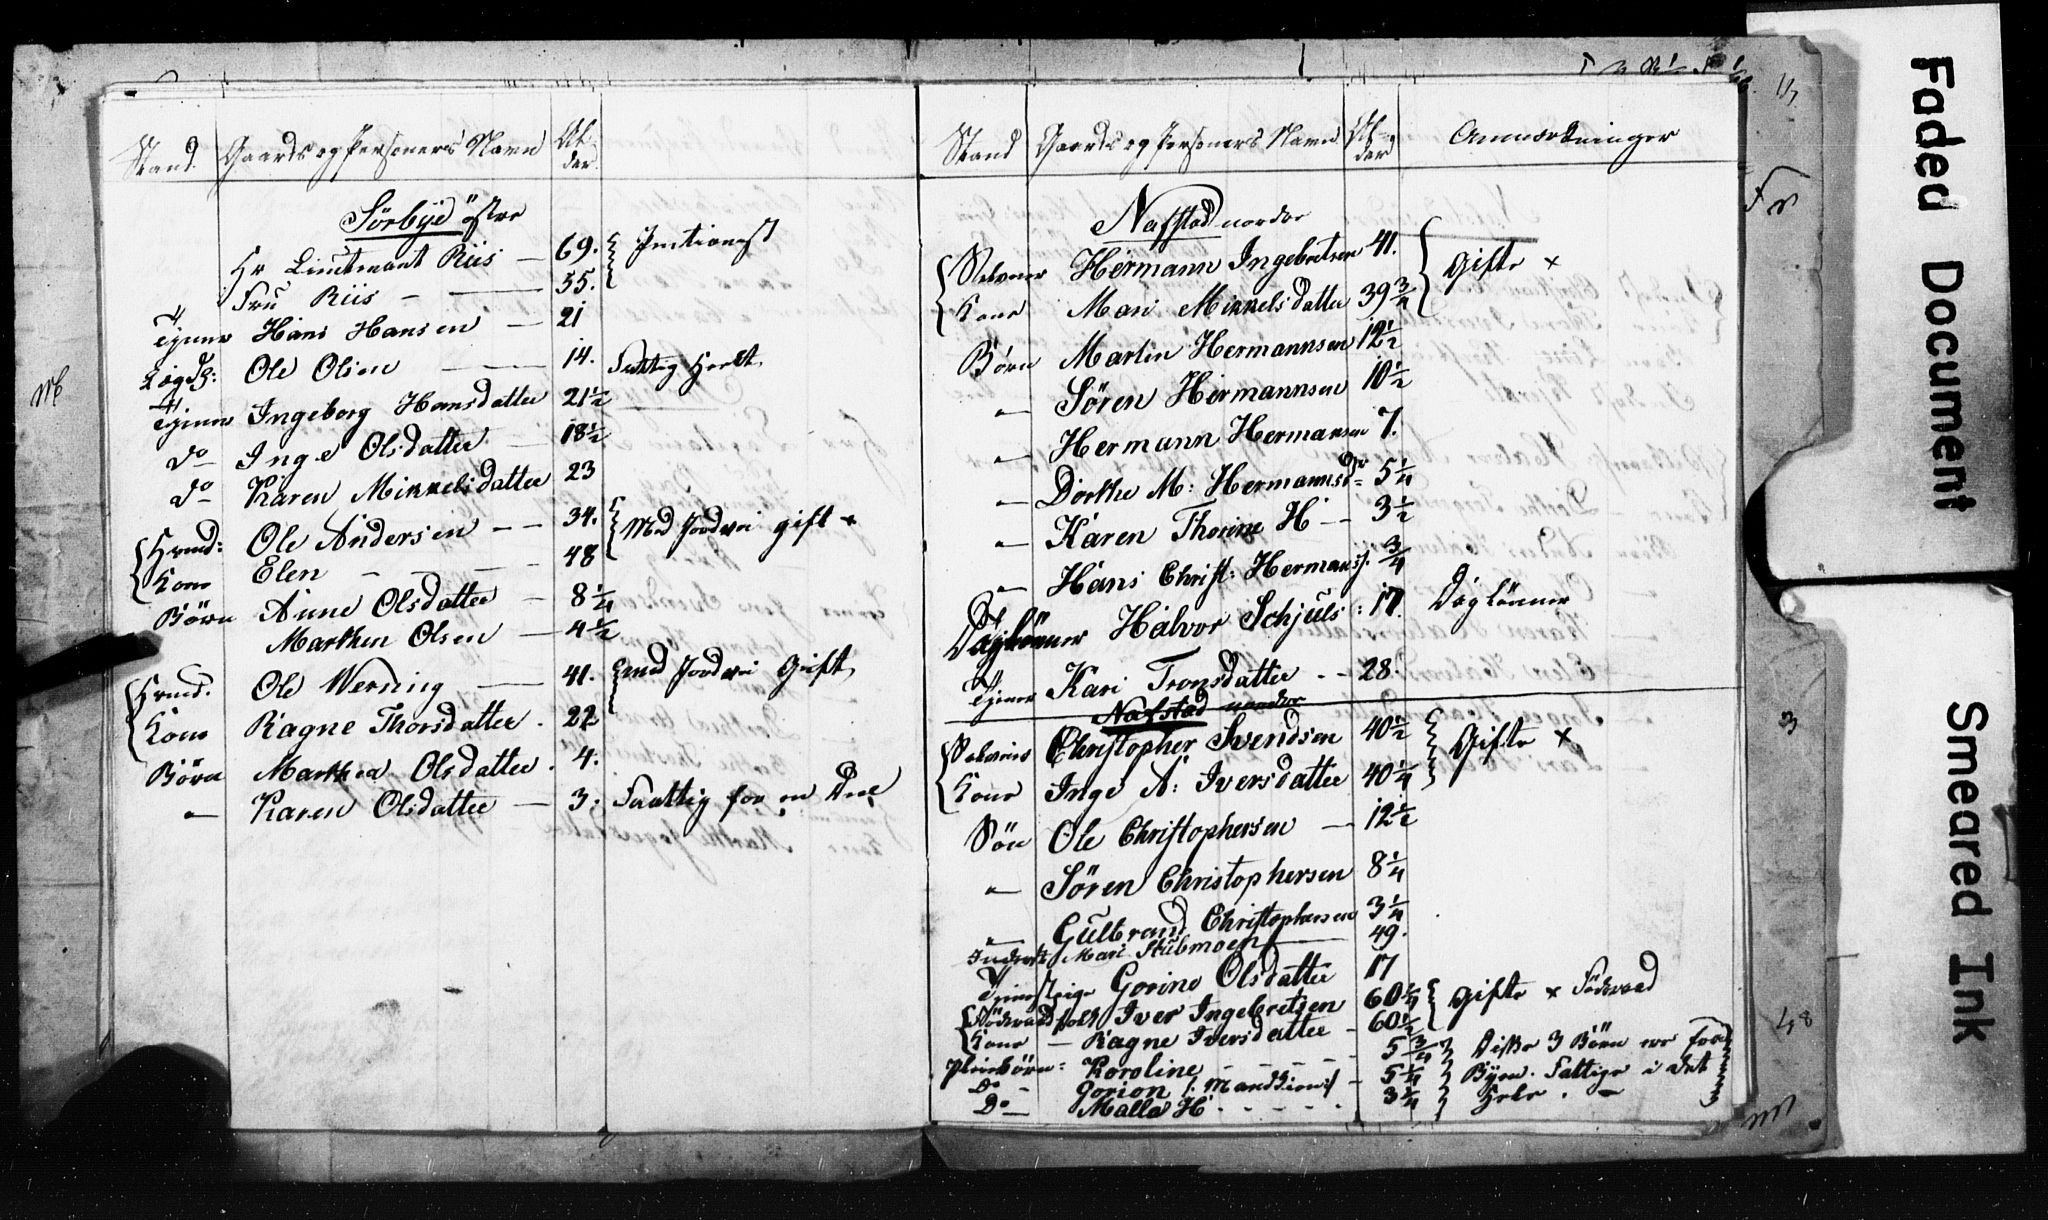 Stand. Gaards og Personers Navn Al-der.
Sörbye östre
Hr Lieutnant Riis — 69. Pentionest
Fru Riis — 55.
Tjener Hans Hansen — 21
Lægds: Ole Olsen — 14. Fattig Heelt
Tjener Ingeborg Hansdatter 21½
Do Inge Olsdatter — 18½
Do Karen Mikkelsdatter 23
Huusd: Ole Andersen — — 34. Med Jordvei gift x
Kone Elen — — — 48
Börn Anne Olsdatter — 8¼
Marthen Olsen — 4½
Huusd. Ole Werning — 41. med Jordvei Gift
Kone Ragne Thorsdatter . 22
Börn Marthea Olsdatter . 4.
— Karen Olsdatter — 3. Faattig for en Deel
Stand Gaards og Personers Navn Al-der Anmærkninger
Nafstad nordre
Selveier Hermann Ingebretsen 41. Gifte x
Kone Mari Mikkelsdatter 39¾
Börn Martin Hermannsen 12½
— Sören Hermannsen 10½
— Hermann Hermansen 7.
— Dorthe M: Hermannsdr 5¼
— Karen Thorine H — — 3½
— Hans Christ: Hermans. ¾
Daglönner Halvor Schjuls: 17. Daglönner
Tjener Kari Tronsdatter - - 28.
Nafstad nordre
Selveier Christopher Svendsen 40½ Gifte x
Kone Inge A: Iversdatter 40¼
Sön Ole Christophersen — 12½
— Sören Christophersen 8¼
— Gulbrand Christophersen 3¼
Inderste Mari Stubmoen — 49.
Tjenestpige Gorine Olsdatter 17
Föderaadfolk Iver Ingebretsen 60¼ Gifte x Föderaad
Kone — Ragne Iversdatter — 60½
Pleiebörn: Karoline — — — 5¾ Disse 3 Börn ere fra
Do - Gorion — 5¼ Byen. Fattige i det
Do — Malla H — 3¼ Hele. —
Faded Document
Smeared Ink